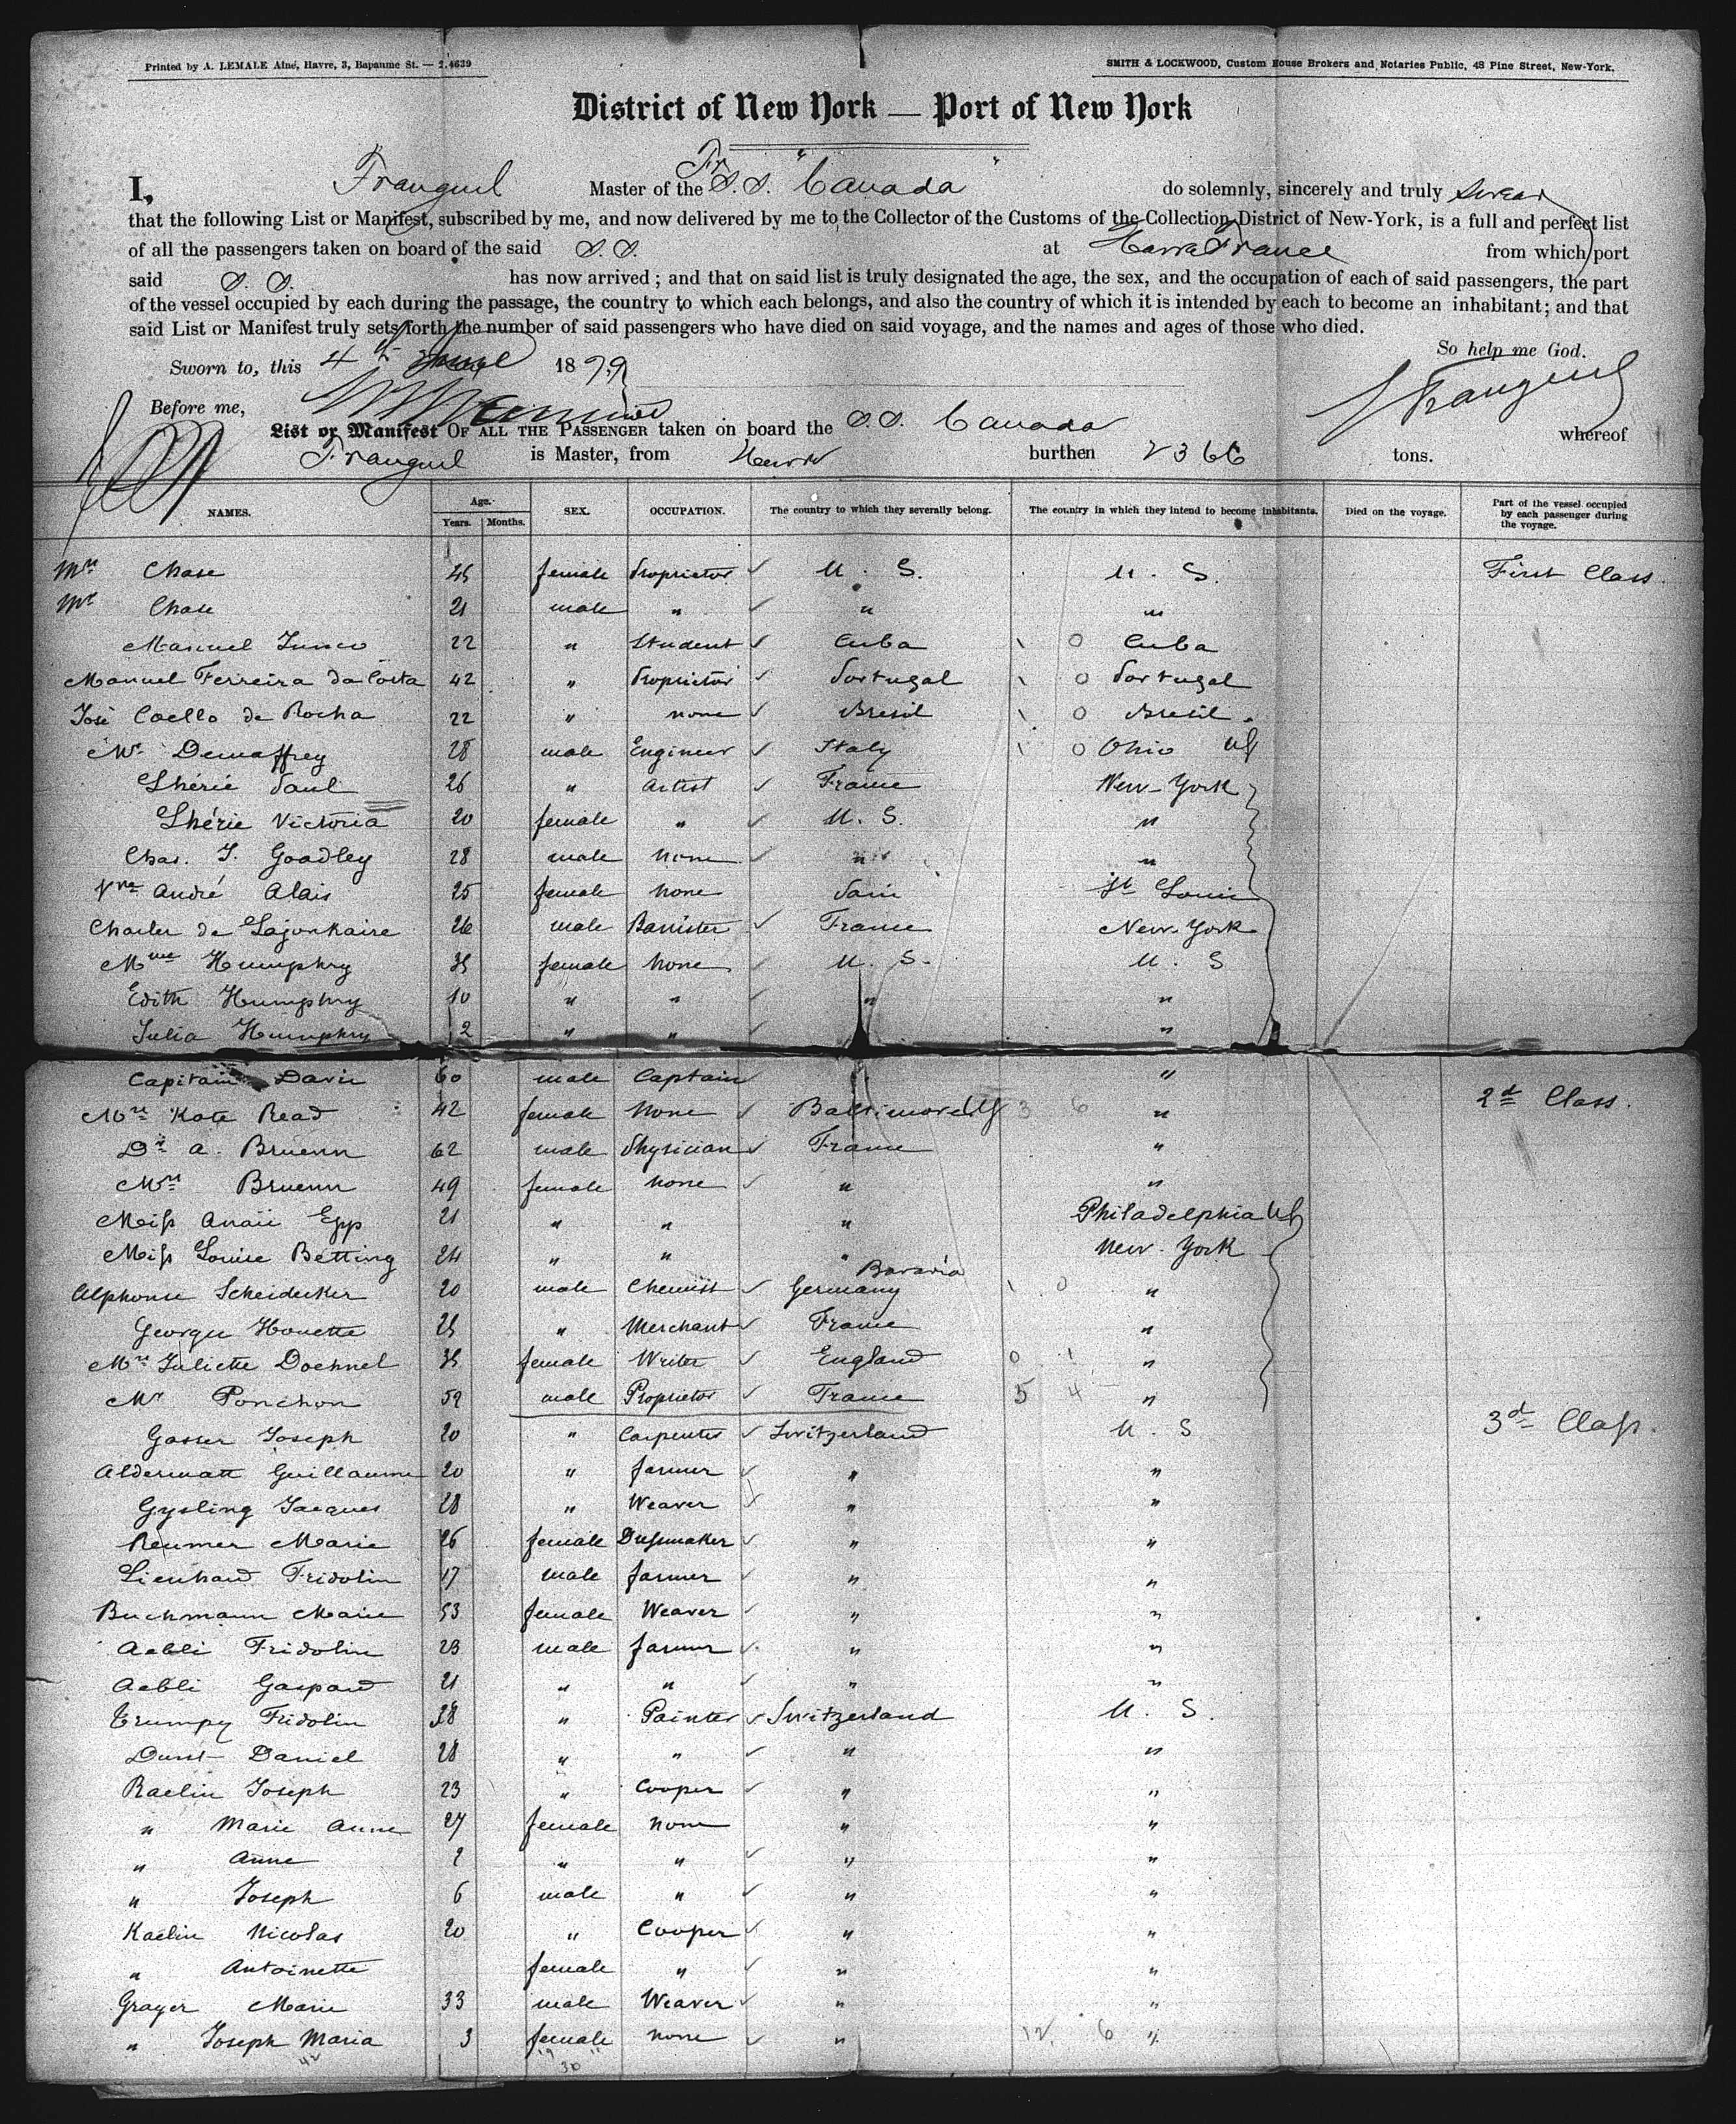 Printed by A. LEMALE Aîné, Havre, 3, Bapaume St. — 2.4639
SMITH & LOCKWOOD, Custom House Brokers and Notaries Public, 48 Pine Street, New-York.
District of New York — Port of New York
I, Franguel Master of the Fr S. S. "Canada" do solemnly, sincerely and truly swear
that the following List or Manifest, subscribed by me, and now delivered by me to the Collector of the Customs of the Collection District of New-York, is a full and perfect list
of all the passengers taken on board of the said S. S. at Havre France from which port
said S. S. has now arrived; and that on said list is truly designated the age, the sex, and the occupation of each of said passengers, the part
of the vessel occupied by each during the passage, the country to which each belongs, and also the country of which it is intended by each to become an inhabitant; and that
said List or Manifest truly sets forth the number of said passengers who have died on said voyage, and the names and ages of those who died.
So help me God.
Sworn to, this 4th 1879
Franguel
Before me,
List or Manifest OF ALL THE PASSENGER taken on board the S. S. Canada whereof
Franguel is Master, from Havre burthen 2366 tons.
NAMES. Age. Years. Months. SEX. OCCUPATION. The country to which they severally belong. The country in which they intend to become inhabitants. Died on the voyage. Part of the vessel occupied by each passenger during the voyage.
Mrs Chase 45 female Proprietor U. S. U. S. First Class.
Mr Chase 21 male " " "
Manuel Junco 22 " Student Cuba 1 0 Cuba
Manuel Ferreira da Costa 42 " Proprietor Portugal 1 0 Portugal
José Coello de Rocha 22 " none Bresil 1 0 Bresil.
Mr. Demaffrey 28 male Engineer Italy 1 0 Ohio US
Lhérié Paul 26 " Artist France New-York
Lhérie Victoria 20 female " U. S. "
Chas. T. Goadley 28 male none " "
Vve André Alais 25 female none Paris St Louis
Charles de Lajonkaire 26 male Barrister France New-York
Mme Humphry 35 female none U. S. U. S
Edith Humphry 10 " " " "
Julia Humphry 2 " " "
Capitain Davis 60 male Captain "
Mrs Kate Read 42 female none Baltimore US 3 6 " 2d Class.
Dr A. Bruenn 62 male Physician France "
Mrs Bruenn 49 female none " "
Miss Anaïs Epp 21 " " " Philadelphia US
Miss Louise Betting 24 " " " New-York
Alphonse Scheidecker 20 male Chemist Germany Bavaria 1 0 "
Georges Houette 25 " Merchant France "
Mrs Juliette Doehnel 35 female Writer England 0 1 "
Mr Ponchon 59 male Proprietor France 5 4 "
Gasser Joseph 20 " Carpenter Switzerland U. S 3d Class.
Aldermatt Guillaume 20 " farmer " "
Gysling Jacques 28 " Weaver " "
Reumer Marie 26 female Dressmaker " "
Lienhard Fridolin 17 male farmer " "
Buchmann Marie 53 female Weaver " "
Aebli Fridolin 23 male farmer " "
Aebli Gaspard 21 " " " "
Trumpy Fridolin 28 " Painter Switzerland U. S.
Durst Daniel 28 " " " "
Raelin Joseph 23 " Cooper " "
" Marie Anne 27 female none " "
" Anne 2 " " " "
" Joseph 6 male " " "
Kaelin Nicolas 20 " Cooper " "
" Antoinette female " " "
Grayer Marie 33 male Weaver " "
" Joseph Maria 3 female none " 12 6 "
42 19 11
30